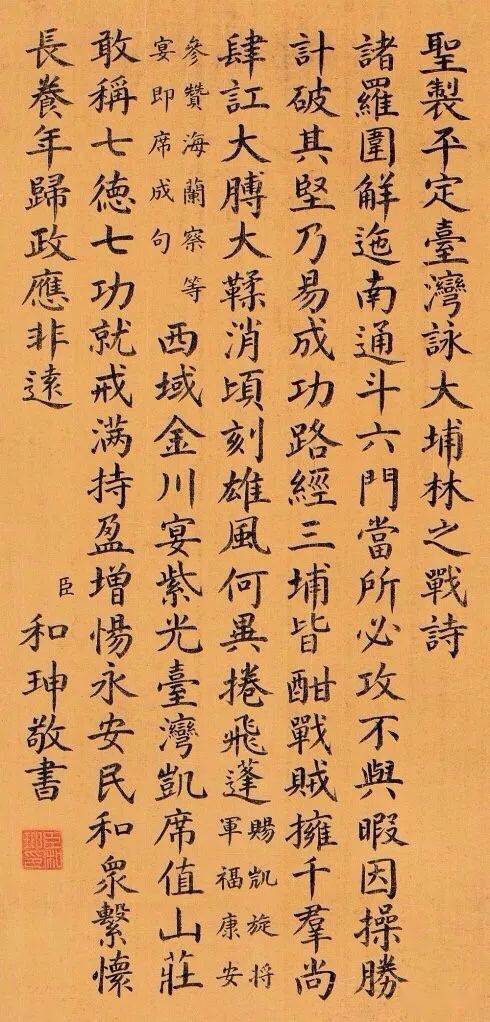 聖製平定臺灣詠大埔林之戰詩
諸羅圍解迤南通斗六門當所必攻不與暇因操勝
計破其堅乃易成功路經三埔皆酣戰賊擁千羣尚
肆訌大膊大鞣消頃刻雄風何異捲飛蓬賜凱旋將軍福康安
參贊海蘭察等宴即席成句西域金川宴紫光臺灣凱席值山莊
敢稱七德七功就戒满持盈增惕永安民和衆繫懷
長養年歸政應非遠
臣和珅敬書